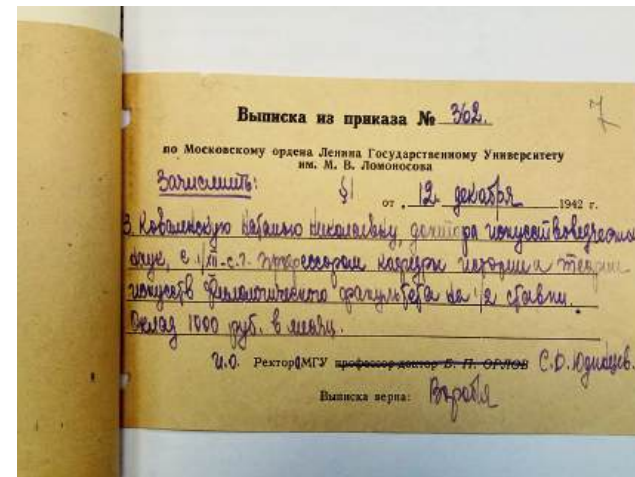 7
Выписка из приказа № 362.
по Московскому ордена Ленина Государственному Университету
им. М. В. Ломоносова
Зачислить: §1 от „12„ декабря 1942 г.
3. Коваленскую Наталью Николаевну, доктора искусствоведческих
наук, с 1/XII-с.г. профессором кафедры истории и теории
искусств филологического факультета на 1/2 ставки.
Оклад 1000 руб. в месяц.
И.О. Ректора МГУ профессор-доктор Б. П. ОРЛОВ С.Д. Юдинцев.
Выписка верна: